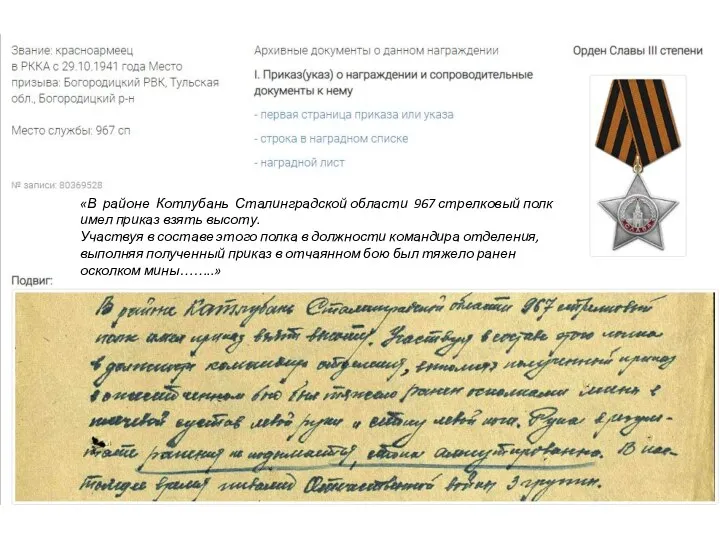 Звание: красноармеец
в РККА с 29.10.1941 года Место
призыва: Богородицкий РВК, Тульская
обл., Богородицкий р-н
Место службы: 967 сп
№ записи: 80369528
Архивные документы о данном награждении
I. Приказ(указ) о награждении и сопроводительные
документы к нему
- первая страница приказа или указа
- строка в наградном списке
- наградной лист
Орден Славы III степени
СЛАВА
«В районе Котлубань Сталинградской области 967 стрелковый полк
имел приказ взять высоту.
Участвуя в составе этого полка в должности командира отделения,
выполняя полученный приказ в отчаянном бою был тяжело ранен
осколком мины……..»
Подвиг:
В района Катлубань Сталинградской области 967 стрелковый
полк имел приказ взять высоту. Участвуя в составе этого полка
в должности командира отделения, выполняя полученный приказ
в ожесточенном бою был тяжело ранен осколками мины в
плечевой сустав левой руки и стопу левой ноги. Рука в резуль-
тате ранения не поднимается, стопа ампутированна. В нас-
тоящее время инвалид Отечественной войны 3 группы.